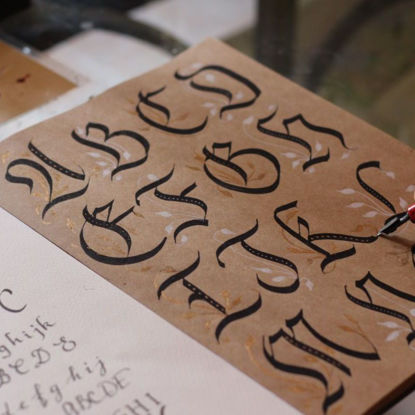 A B C D
E F G H
I J K L
M N
C
ghijk
BCDE
efghij
ABCDE
GHI